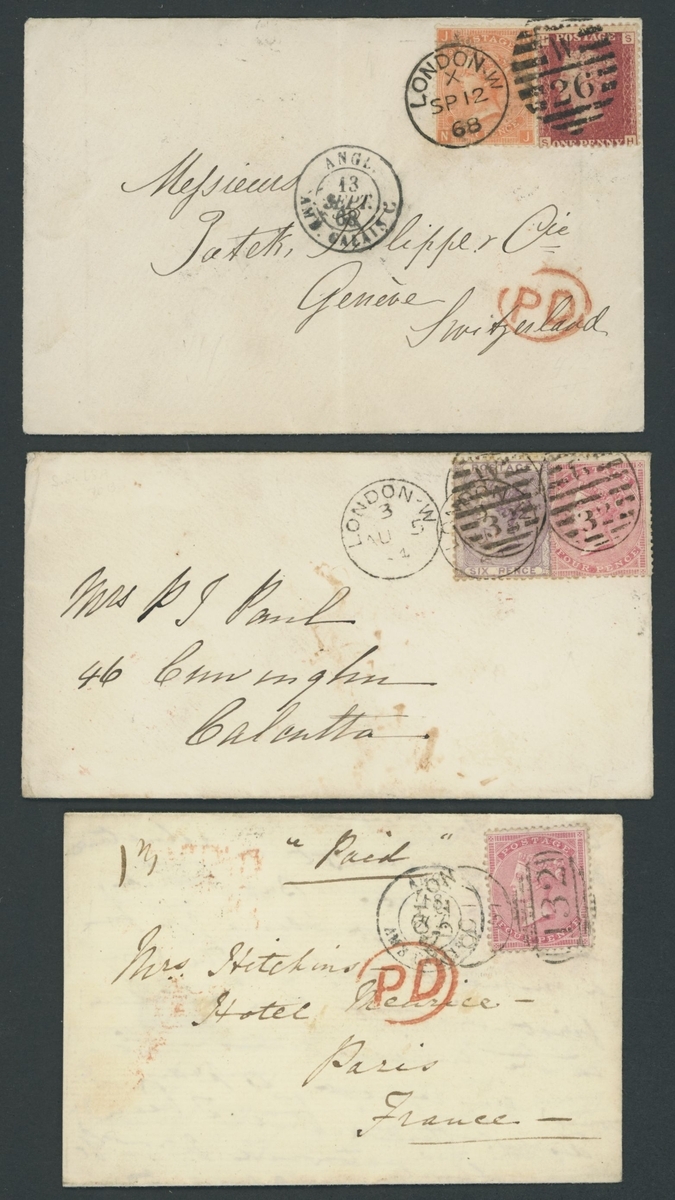 J
POSTAGE
J
N
LONDON-W
X
SP 12
68
W
26
POSTAGE
S
S
ONE PENNY
H
ANGL.
13
SEPT.
68
AMB. CALAIS C
Messieurs
Patek, Philippe & Cie
Genève
Switzerland
PD
LONDON-W
3
AU 5
4
W
32
SIX PENCE
W
32
FOUR PENCE
Mrs P J Paul
46
Calcutta
"Paid"
POSTAGE
132
Mrs Hitchins
Hotel Meurice
Paris
France
PD